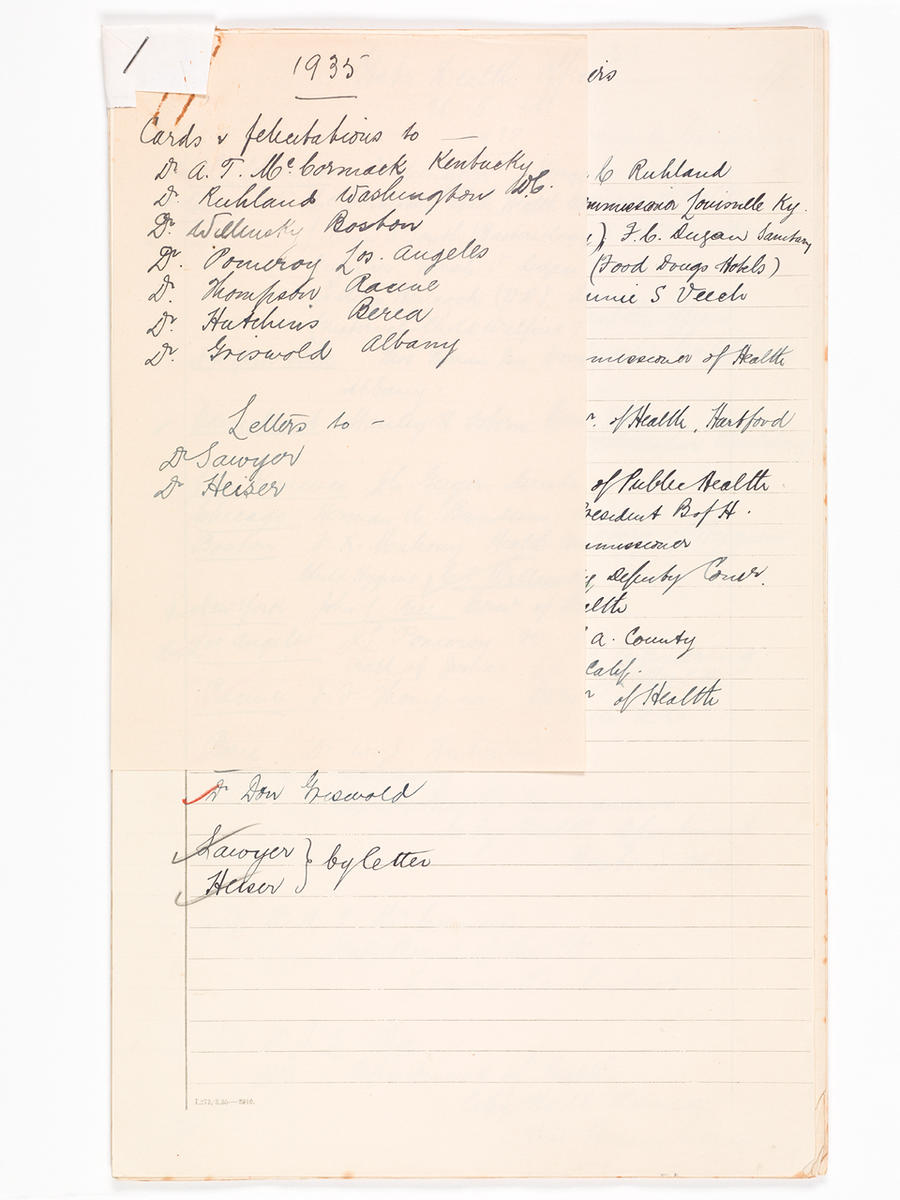 1
1935
Cards & felicitations to —
Dr. A. T. McCormack Kentucky
Dr. Ruhland Washington D.C.
Dr. Willinsky Boston
Dr. Pomeroy Los. Angeles
Dr. Thompson Racine
Dr. Hutchins Berea
Dr. Griswold Albany
Letters to —
Dr Sawyer
Dr Heiser
C Ruhland
Louisville Ky.
F. C. Dugan Sanitary
(Food Drugs Hotels)
S Veech
of Health
of Health, Hartford
of Public Health
B of H.
Deputy Comr.
a. County
Calif.
of Health
Dr Don Griswold
Sawyer
Heiser } by letter